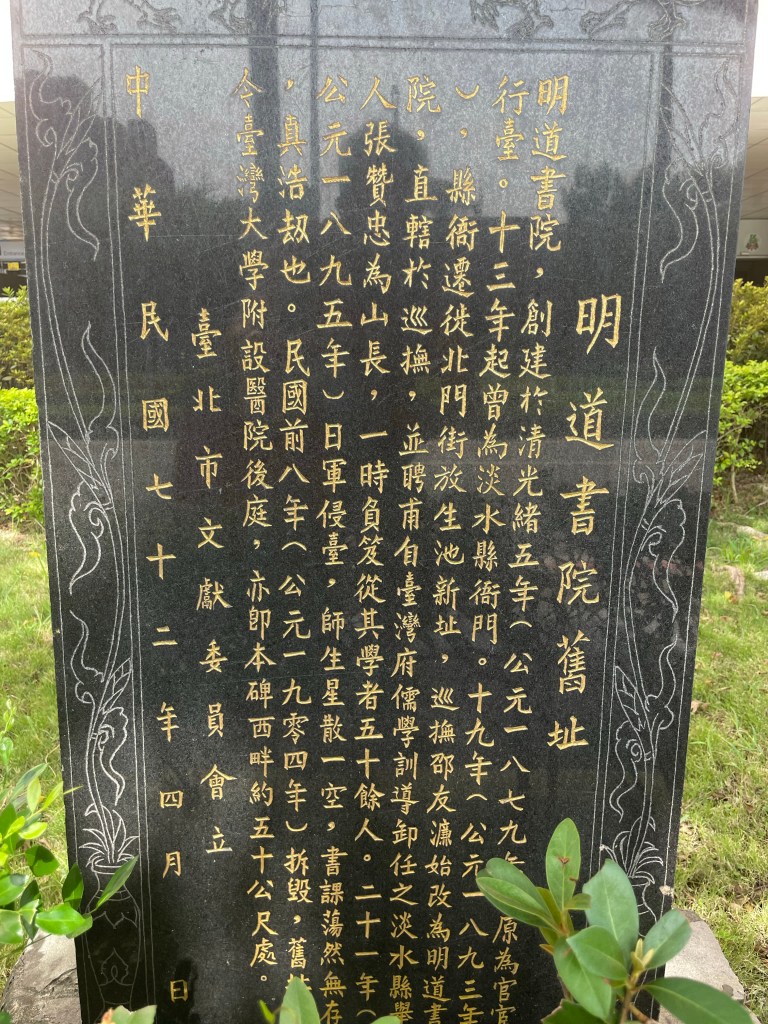 明道書院舊址
明道書院，創建於清光緒五年（公元一八七九年 原為官
行臺。十三年起曾為淡水縣衙門。十九年（公元一八九三年
），縣衙遷徙北門街放生池新址，巡撫邵友濂始改為明道書
院，直轄於巡撫，並聘甫自臺灣府儒學訓導卸任之淡水縣舉
人張贊忠為山長，一時負笈從其學者五十餘人。二十一年（
公元一八九五年）日軍侵臺，師生星散一空，書課蕩然無存
，真浩劫也。民國前八年（公元一九零四年）拆毀，舊
今臺灣大學附設醫院後庭，亦即本碑西畔約五十公尺處。
臺北市文獻委員會立
中華民國七十二年四月 日